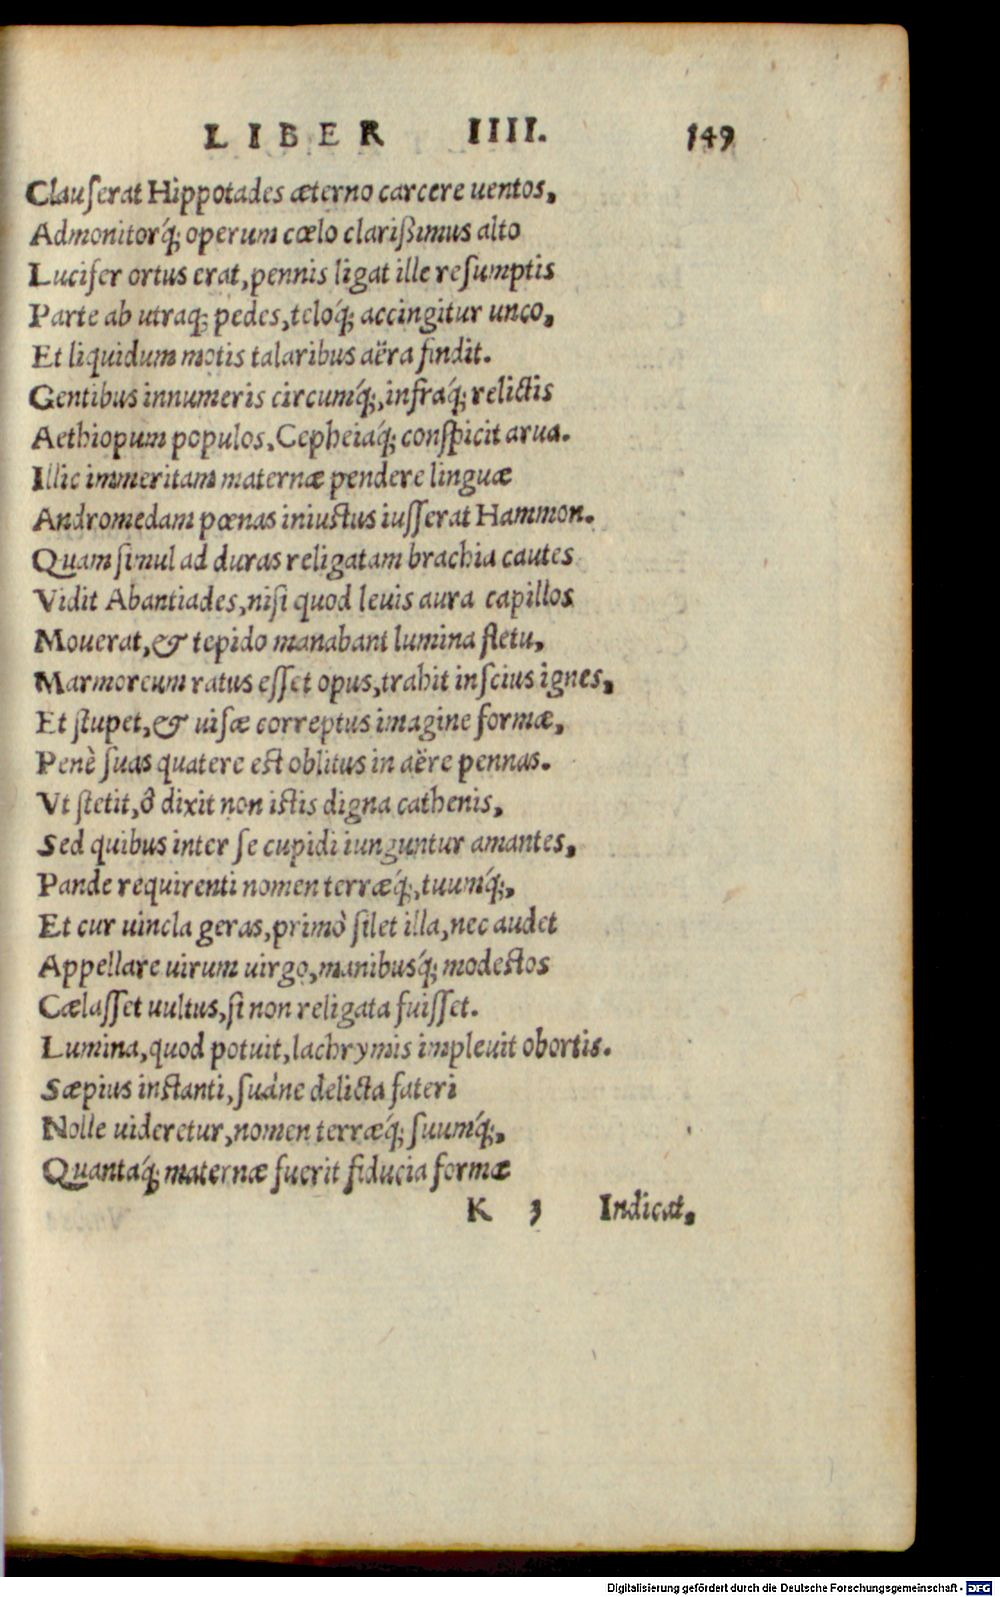 LIBER IIII. 149
Clauſerat Hippotades æterno carcere uentos,
Admonitorq́; operum cœlo clarißimus alto
Lucifer ortus erat, pennis ligat ille reſumptis
Parte ab utraq; pedes, teloq́; accingitur unco,
Et liquidum motis talaribus aëra findit.
Gentibus innumeris circumq́;, infraq́; relictis
Aethiopum populos, Cepheiaq́; conſpicit arua.
Illic immeritam maternæ pendere linguæ
Andromedam pœnas iniuctus iuſſerat Hammon.
Quam ſimul ad duras religatam brachia cautes
Vidit Abantiades, niſi quod leuis aura capillos
Mouerat, & tepido manabant lumina fletu,
Marmoreum ratus eſſet opus, trahit inſcius ignes,
Et ſtupet, & uiſæ correptus imagine formæ,
Penè ſuas quatere est oblitus in aëre pennas.
Vt ſtetit, ô dixit non istis digna cathenis,
Sed quibus inter ſe cupidi iunguntur amantes,
Pande requirenti nomen terræq́;, tuumq́;,
Et cur uincla geras, primò ſilet illa, nec audet
Appellare uirum uirgo, manibusq́; modestos
Cælaſſet uultus, ſi non religata fuiſſet.
Lumina, quod potuit, lachrymis impleuit obortis.
Sæpius instanti, ſuáne delicta fateri
Nolle uideretur, nomen terræq́; ſuumq́;,
Quantaq́; maternæ fuerit fiducia formæ
K 3 Indicat,
Digitalisierung gefördert durch die Deutsche Forschungsgemeinschaft - DFG